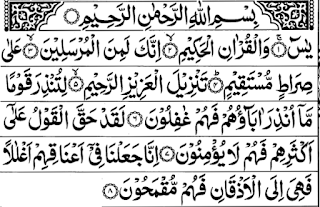 بِسْمِ اللهِ الرَّحْمٰنِ الرَّحِيْمِ ○
يٰسٓ ۝١ وَالْقُرْاٰنِ الْحَكِيْمِ ۝٢ اِنَّكَ لَمِنَ الْمُرْسَلِيْنَ ۝٣ عَلٰى
صِرَاطٍ مُّسْتَقِيْمٍ ۝٤ تَنْزِيْلَ الْعَزِيْزِ الرَّحِيْمِ ۝٥ لِتُنْذِرَ قَوْمًا
مَّآ اُنْذِرَ اٰبَآؤُهُمْ فَهُمْ غٰفِلُوْنَ ۝٦ لَقَدْ حَقَّ الْقَوْلُ عَلٰٓى
اَكْثَرِهِمْ فَهُمْ لَا يُؤْمِنُوْنَ ۝٧ اِنَّا جَعَلْنَا فِيْٓ اَعْنَاقِهِمْ اَغْلٰلًا
فَهِيَ اِلَى الْاَذْقَانِ فَهُمْ مُّقْمَحُوْنَ ۝٨